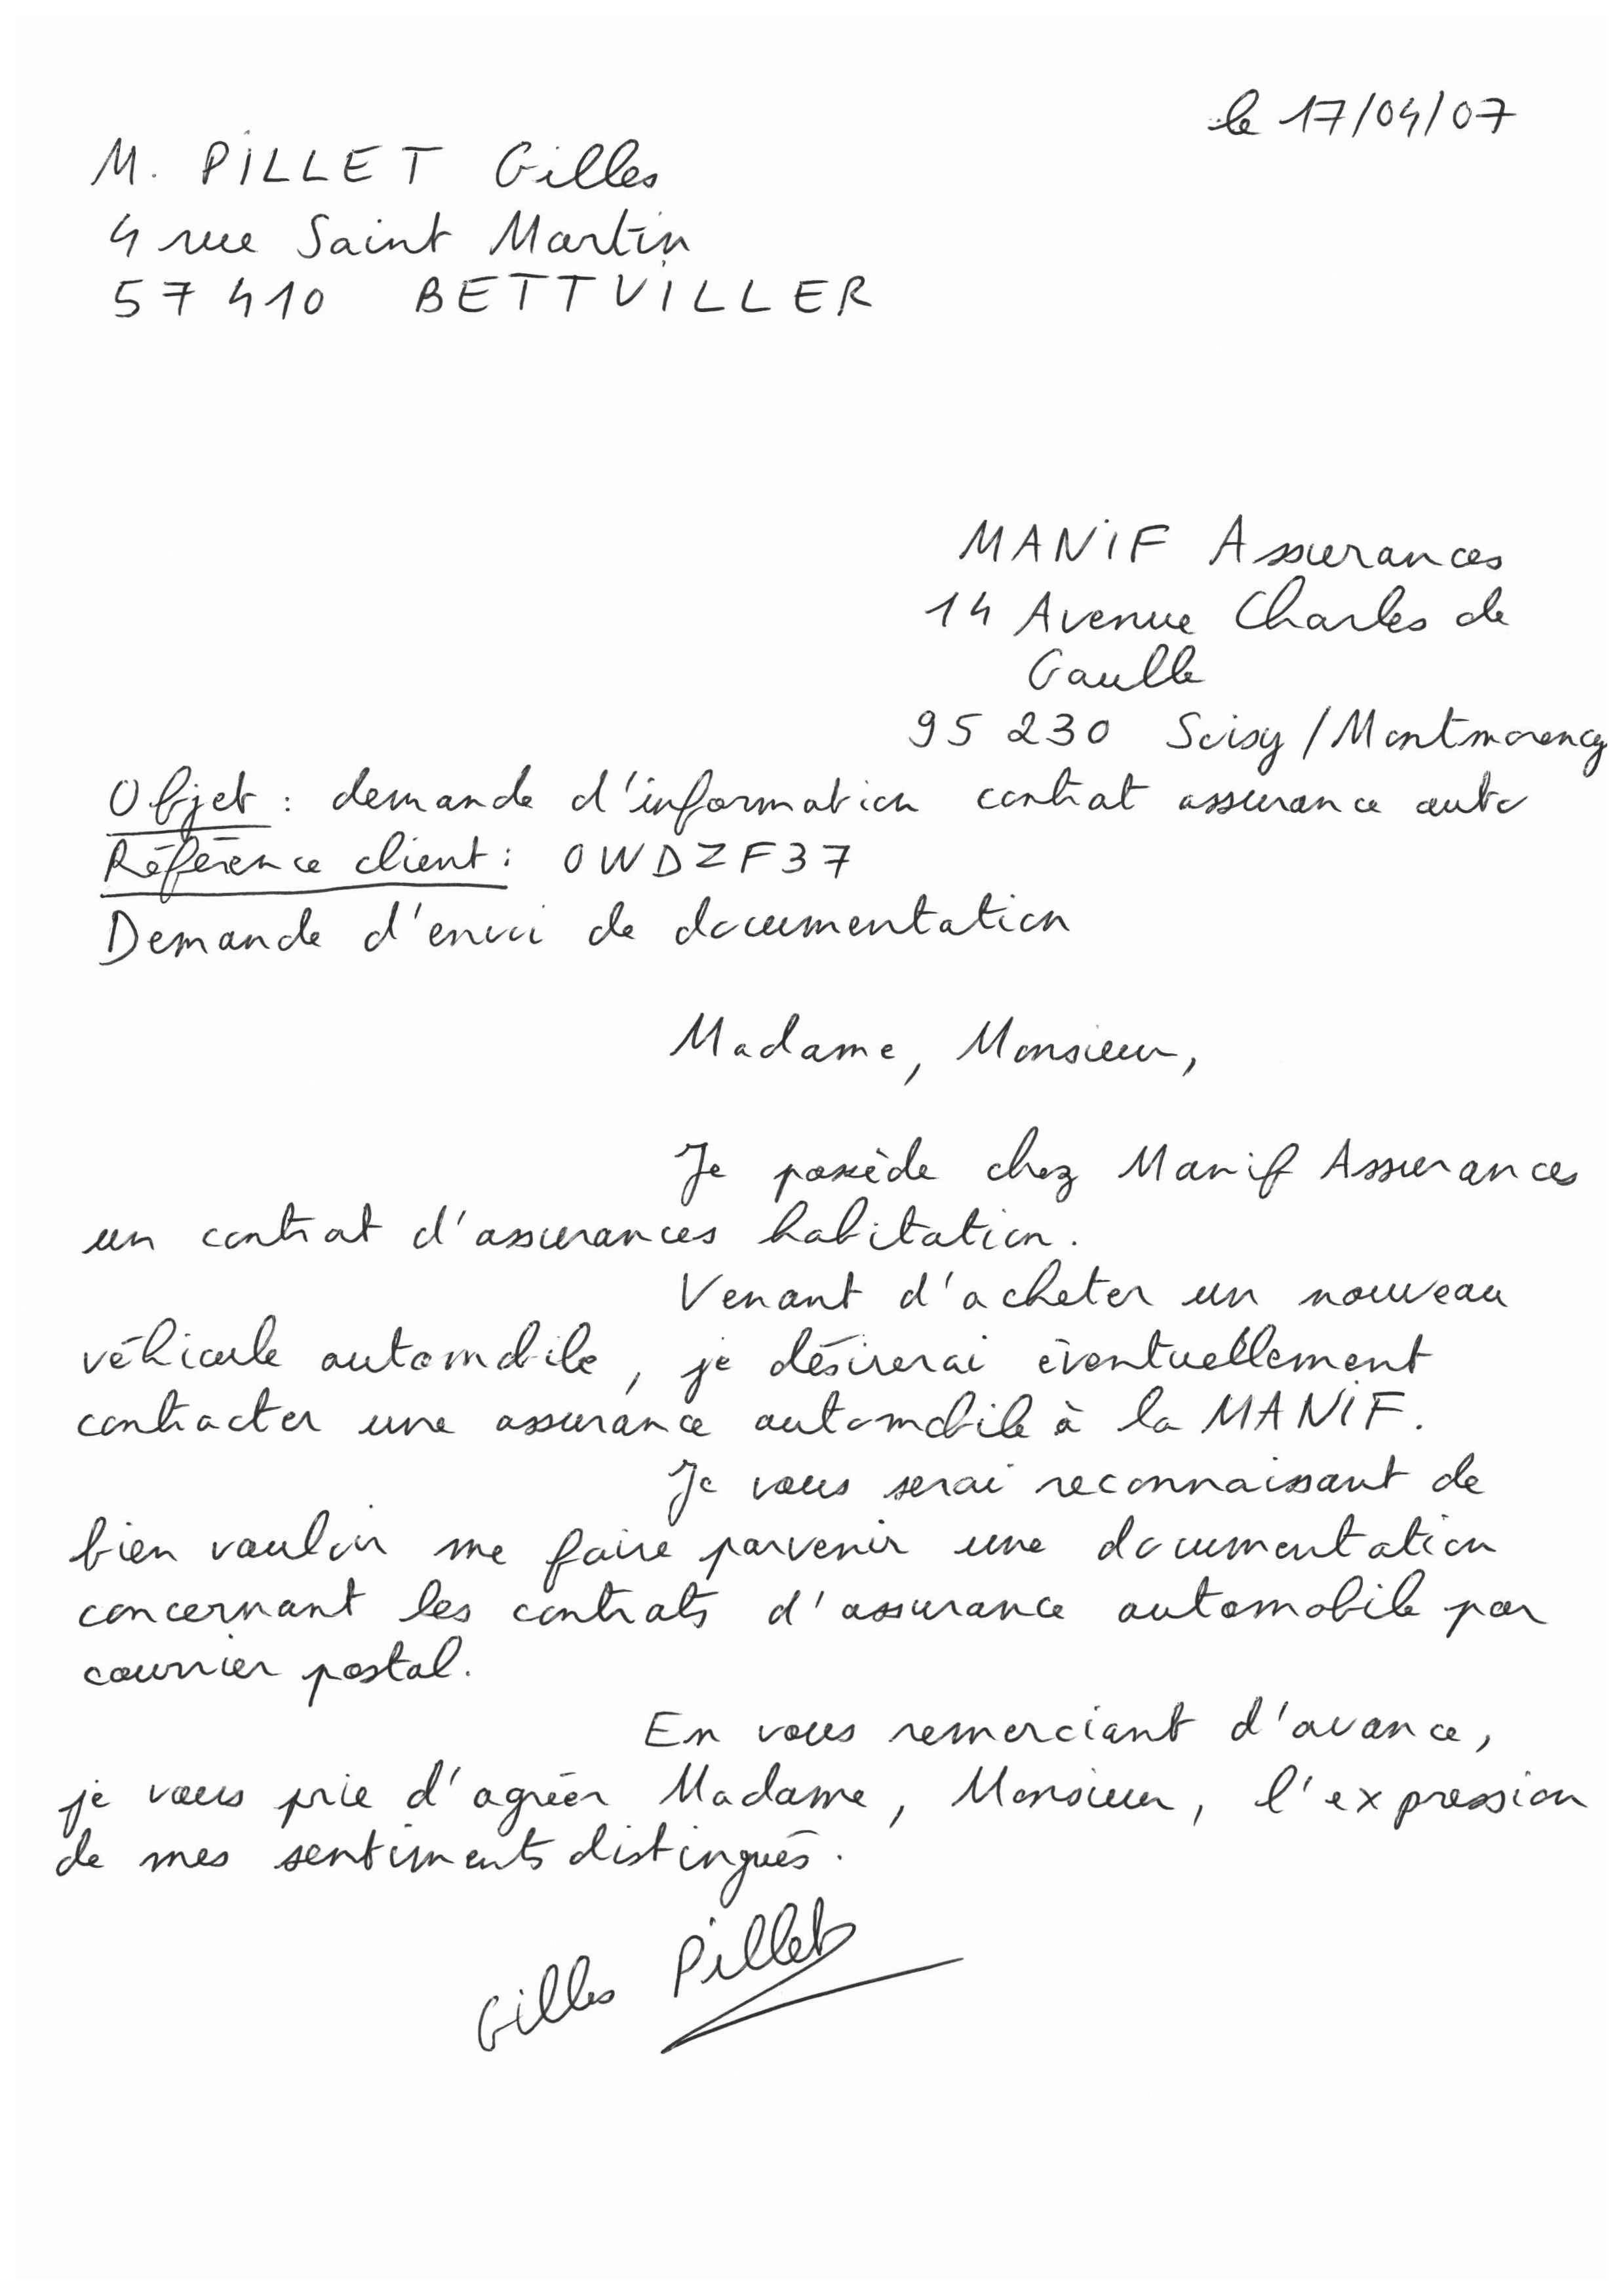 le 17/04/07
M. PILLET Gilles
4 rue Saint Martin
57410 BETTVILLER
MANIF Assurances
14 Avenue Charles de
Gaulle
95 230 Soisy / Montmorency
Objet : demande d'information contrat assurance auto
Référence client : OWDZF37
Demande d'envoi de documentation
Madame, Monsieur,
Je possède chez Manif Assurances
un contrat d'assurances habitation.
Venant d'acheter un nouveau
véhicule automobile, je désirerai éventuellement
contracter une assurance automobile à la MANIF.
Je vous serai reconnaissant de
bien vouloir me faire parvenir une documentation
concernant les contrats d'assurance automobile par
courrier postal.
En vous remerciant d'avance,
je vous prie d'agréer Madame, Monsieur, l'expression
de mes sentiments distingués.
Gilles Pillet